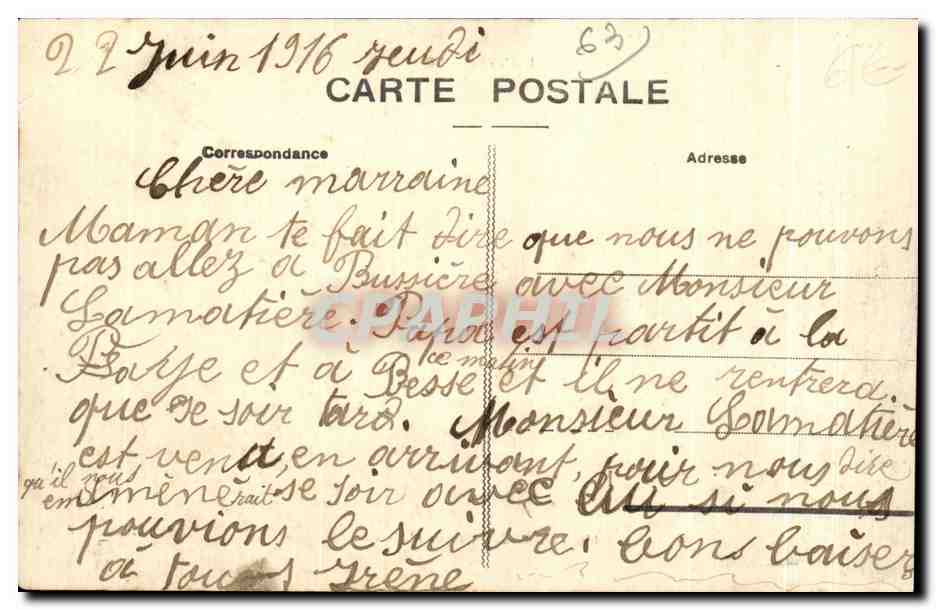 22 Juin 1916 jeudi
63
CARTE POSTALE
Correspondance
Adresse
Chère marraine
Maman te fait dire que nous ne pouvons
pas allez à Bussière avec Monsieur
Lamatière. Papa est partit à la
Baye et à Besse ce matin et il ne rentrera
que se soir tard. Monsieur Lamatière
est venut, en arrivant, pour nous dire
qu'il nous emmènerait se soir avec lui si nous
pouvions le suivre. bons baisers
à tous Irène
CPAPHIL